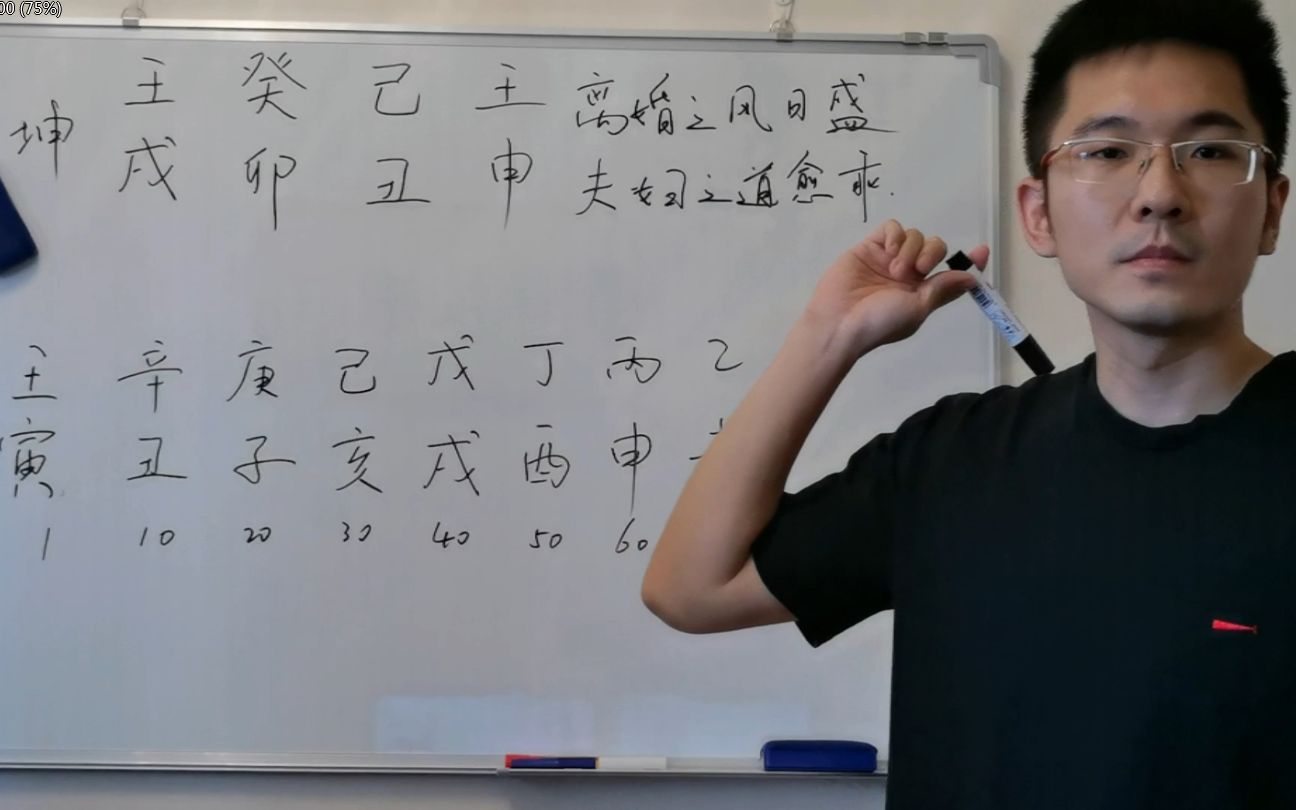 00 (75%)
坤
壬 癸 己 壬 离婚之风日盛
戌 卯 丑 申 夫妇之道愈乖.
壬 辛 庚 己 戊 丁 丙 乙
寅 丑 子 亥 戌 酉 申
1 10 20 30 40 50 60